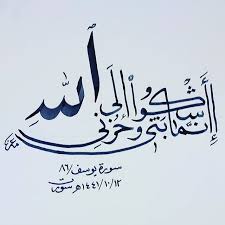 إنما أشكوا بثي وحزني إلى الله
سورة يوسف /٨٦
١٤٤١/١٠/١٢ هـ